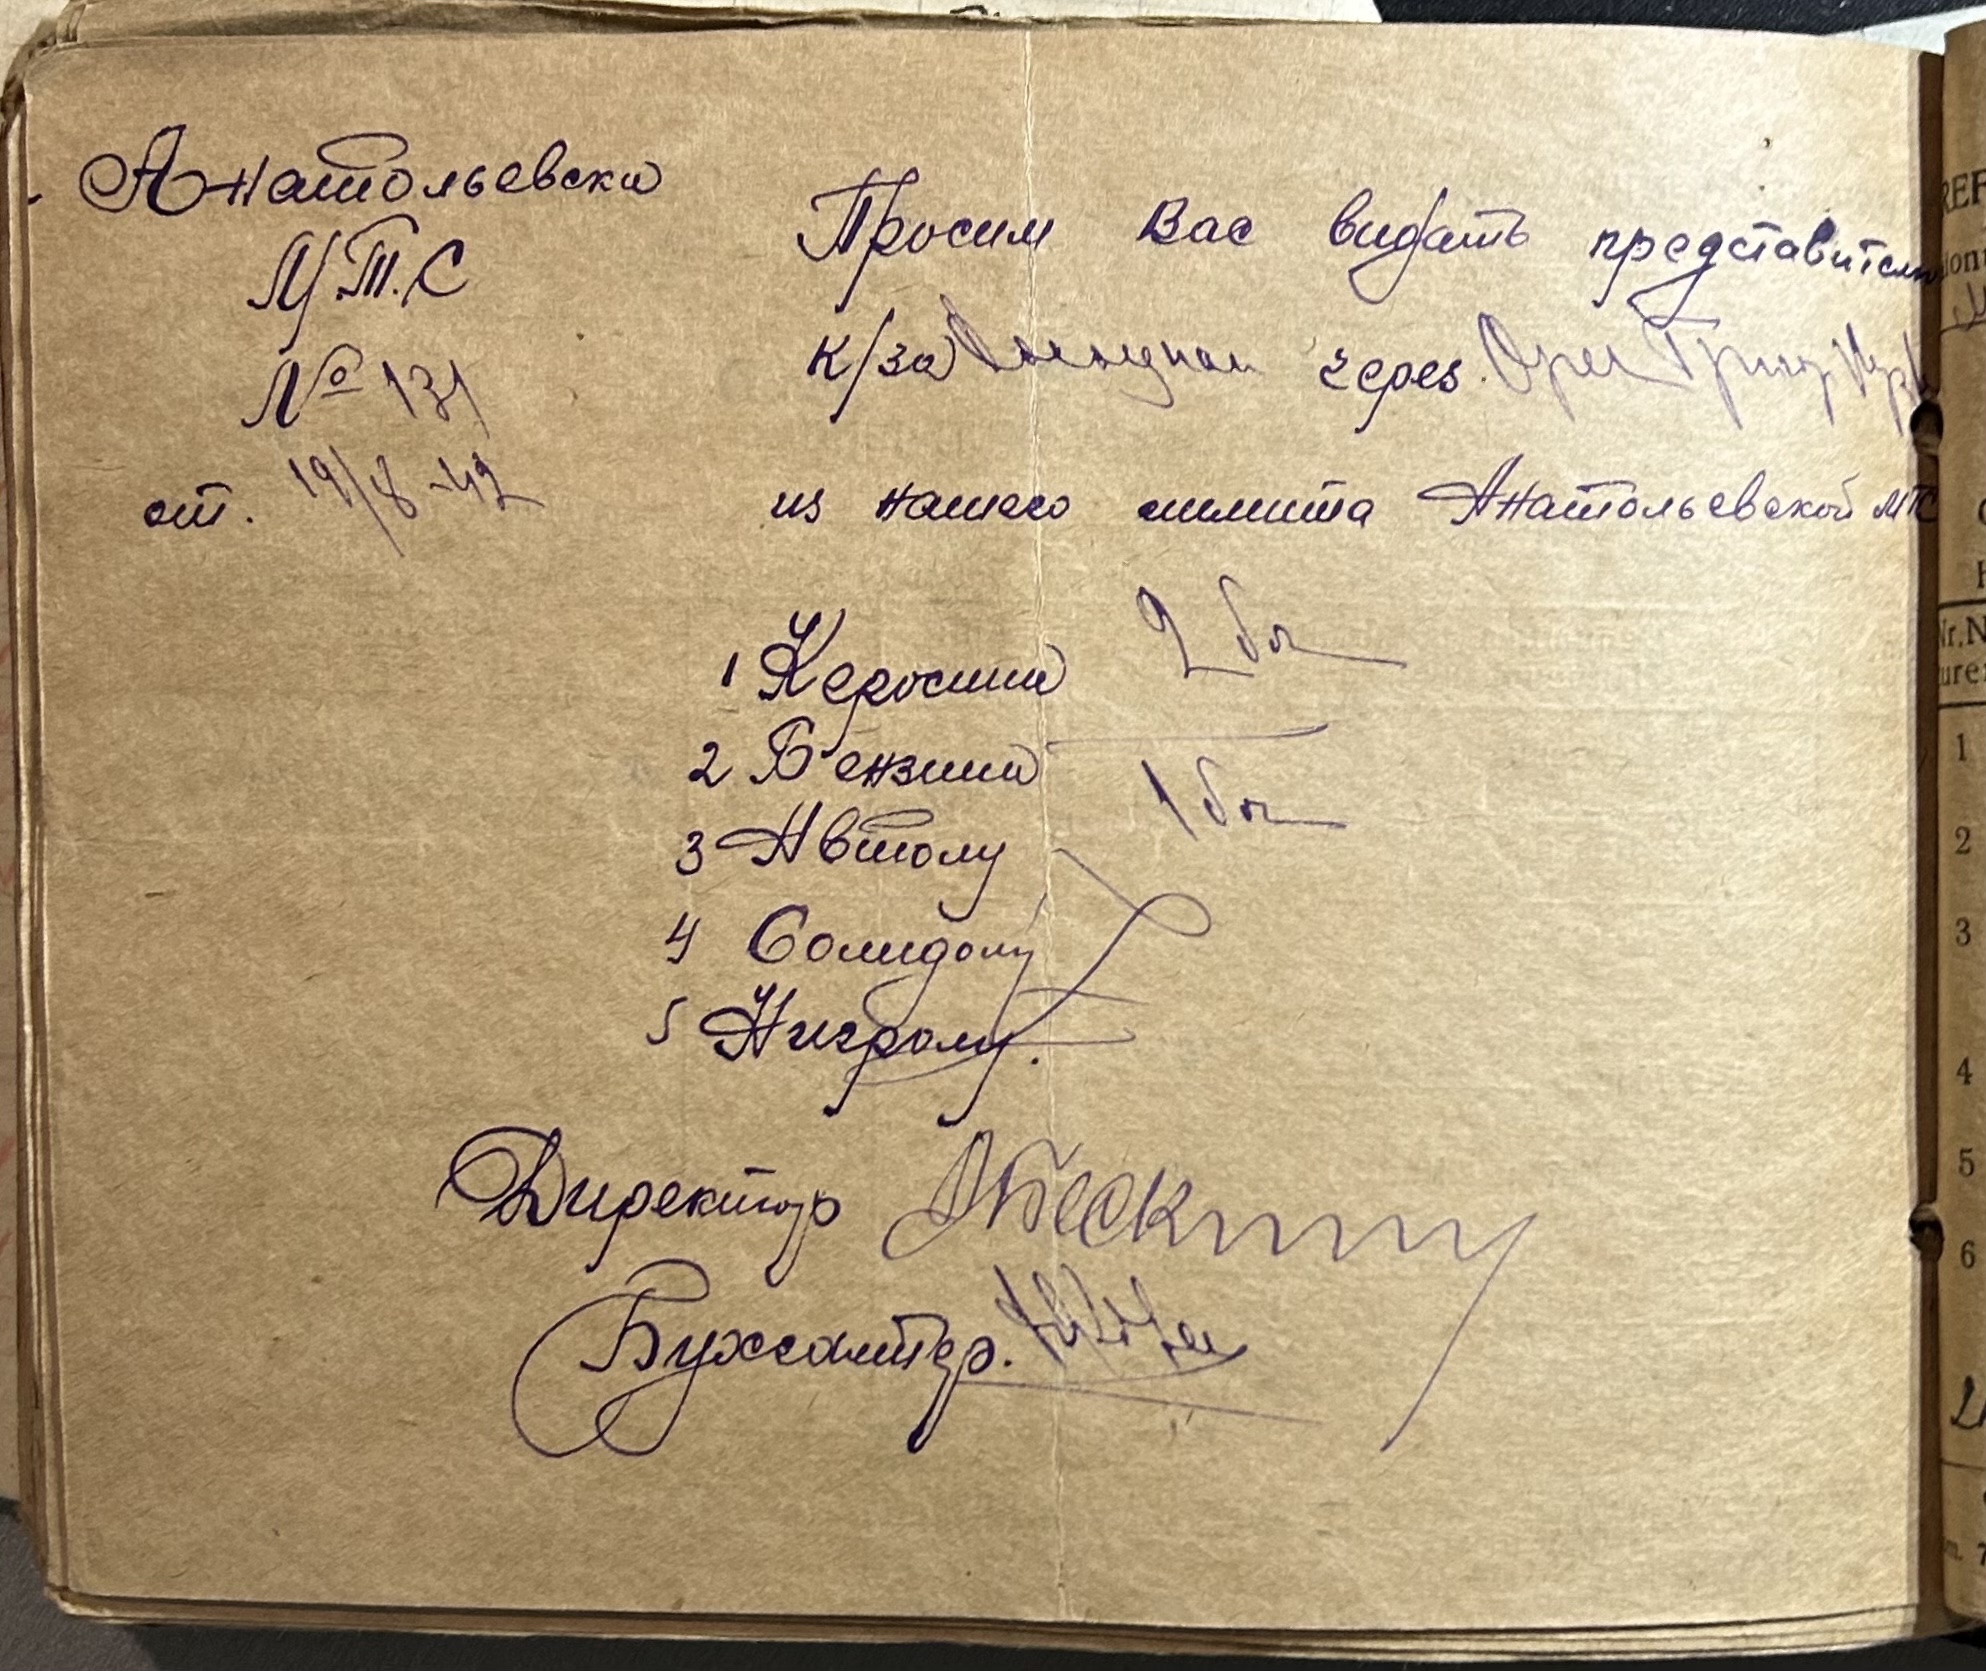 Анатольевска
М.Т.С
№ 131
от. 19/8-42
Просим Вас видать представителю
к/за через
из нашего лимита Анатольевской МТС
1 Керосина 2 боч
2 Бензина 1 боч
3 Автолу
4 Солидолу
5 Нигролу.
Директор
Бухгалтер.
1
2
3
4
5
6